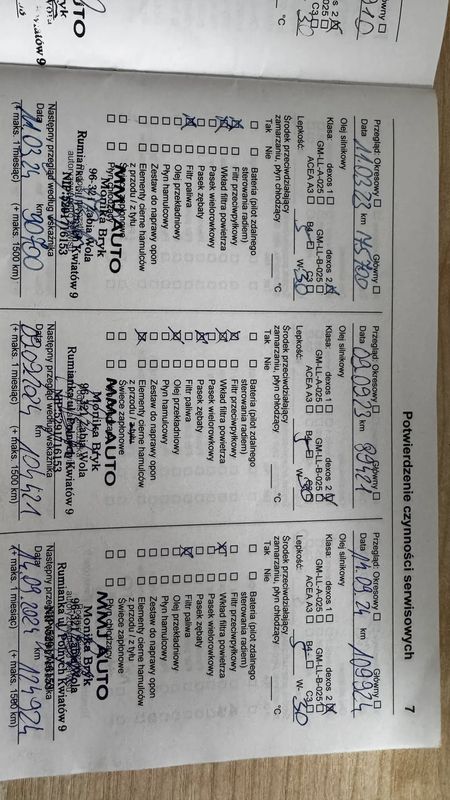 Potwierdzenie czynności serwisowych
7
Przegląd: Okresowy □ Główny □
Data 11.03.22 km 75700
Olej silnikowy
Klasa: dexos 1 □ dexos 2 ☒
GM-LL-A-025 □ GM-LL-B-025 □
ACEA A3 □ B4 □ C3 □
Lepkość: W- 30
Środek przeciwdziałający
zamarzaniu, płyn chłodzący °C
Tak Nie
Bateria (pilot zdalnego
sterowania radiem)
Filtr przeciwpyłkowy
Wkład filtra powietrza
Pasek wielorowkowy
Pasek zębaty
Filtr paliwa
Olej przekładniowy
Płyn hamulcowy
Zestaw do naprawy opon
Elementy cierne hamulców
z przodu / z tyłu
MM-AUTO
Monika Bryk
96-321 Żabia Wola
Rumianka ul. Polnych Kwiatów 9
Następny przegląd według wskaźnika
Data 11.03.24 km 90700
(+ maks. 1 miesiąc) (+ maks. 1500 km)
Przegląd: Okresowy □ Główny □
Data 09.09.23 km 89421
Olej silnikowy
Klasa: dexos 1 □ dexos 2 ☒
GM-LL-A-025 □ GM-LL-B-025 □
ACEA A3 □ B4 □ C3 □
Lepkość: W-
Środek przeciwdziałający
zamarzaniu, płyn chłodzący °C
Tak Nie
Bateria (pilot zdalnego
sterowania radiem)
Filtr przeciwpyłkowy
Wkład filtra powietrza
Pasek wielorowkowy
Pasek zębaty
Filtr paliwa
Olej przekładniowy
Płyn hamulcowy
Zestaw do naprawy opon
Elementy cierne hamulców
z przodu / z tyłu
Świece zapłonowe
MM-AUTO
Monika Bryk
96-321 Żabia Wola
Rumianka ul. Polnych Kwiatów 9
Następny przegląd według wskaźnika
Data 09.09.2024 km 104421
(+ maks. 1 miesiąc) (+ maks. 1500 km)
Przegląd: Okresowy □ Główny □
Data 14.09.24 km 109924
Olej silnikowy
Klasa: dexos 1 □ dexos 2 ☒
GM-LL-A-025 □ GM-LL-B-025 □
ACEA A3 □ B4 □ C3 □
Lepkość: W- 30
Środek przeciwdziałający
zamarzaniu, płyn chłodzący °C
Tak Nie
Bateria (pilot zdalnego
sterowania radiem)
Filtr przeciwpyłkowy
Wkład filtra powietrza
Pasek wielorowkowy
Pasek zębaty
Filtr paliwa
Olej przekładniowy
Płyn hamulcowy
Zestaw do naprawy opon
Elementy cierne hamulców
z przodu / z tyłu
Świece zapłonowe
Monika Bryk
Rumianka ul. Polnych Kwiatów 9
Data km
(+ maks. 1 miesiąc) (+ maks. 1500 km)